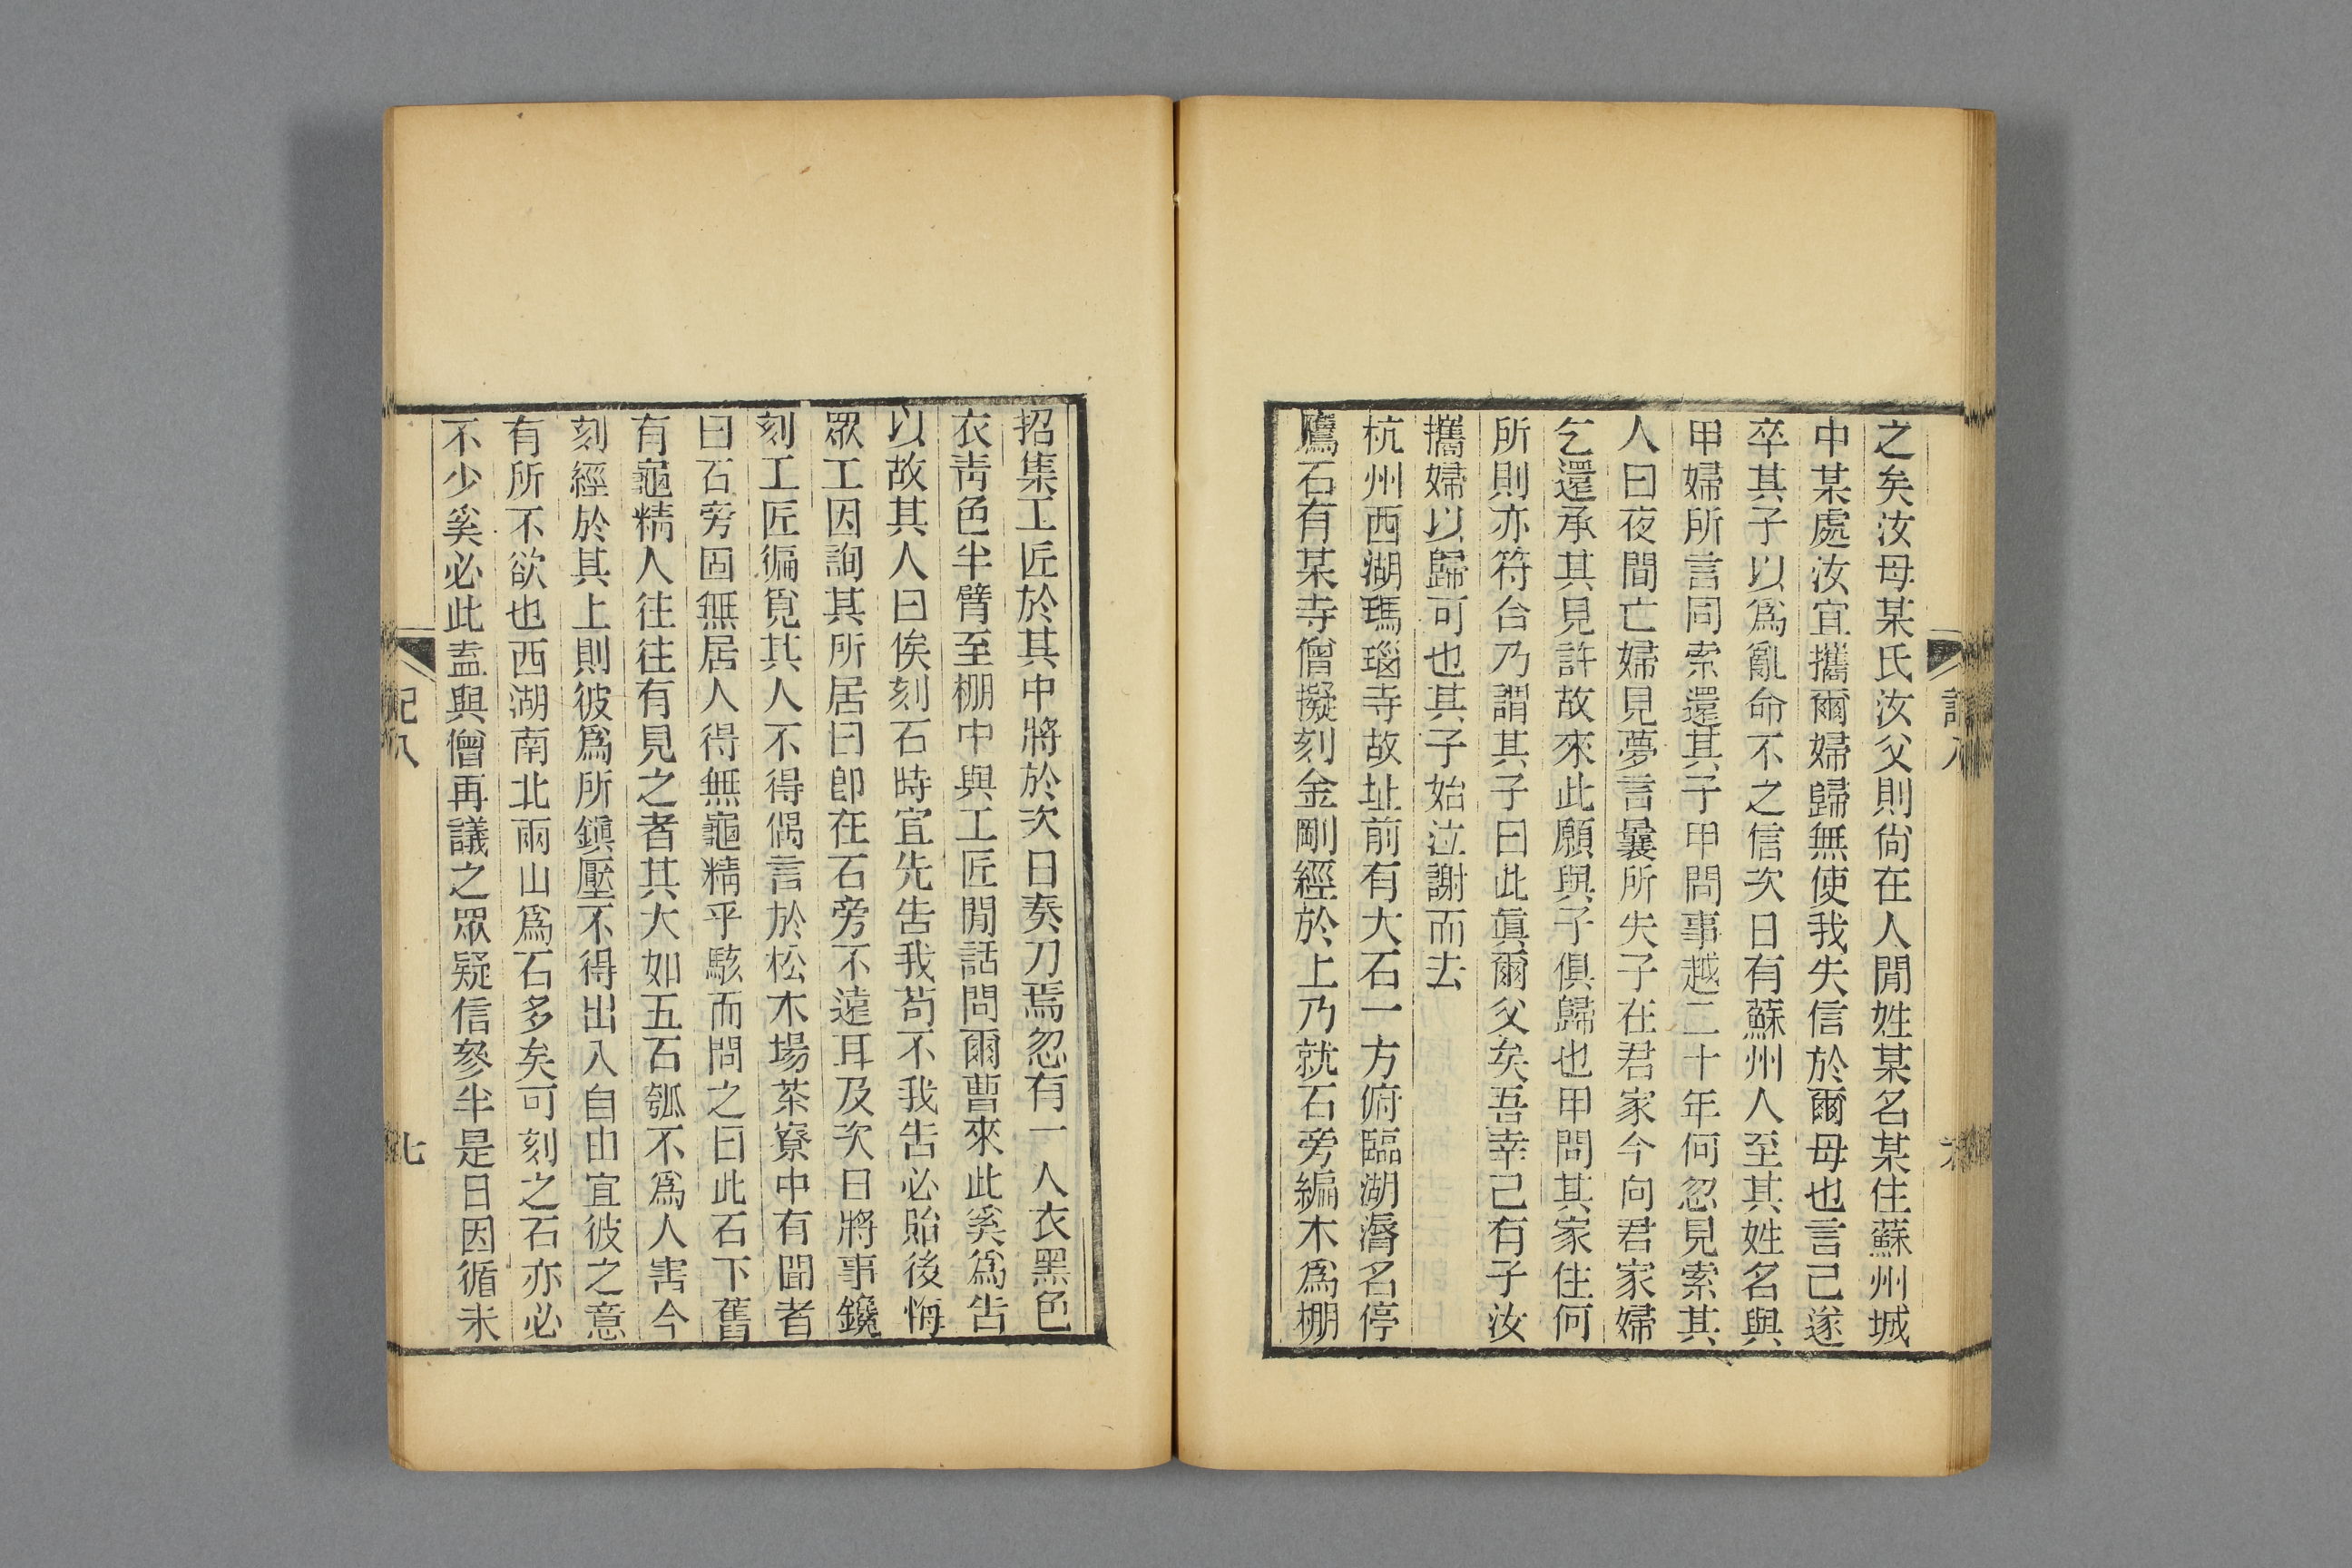 之矣汝母某氏汝父則尙在人閒姓某名某住蘇州城
中某處汝宜攜爾婦歸無使我失信於爾母也言已遂
卒其子以爲亂命不之信次日有蘇州人至其姓名與
甲婦所言同索還其子甲問事越二十年何忽見索其
人曰夜間亡婦見夢言曩所失子在君家今向君家婦
乞還承其見許故來此願與子俱歸也甲問其家住何
所則亦符合乃謂其子曰此眞爾父矣吾幸已有子汝
攜婦以歸可也其子始泣謝而去
杭州西湖瑪瑙寺故址前有大石一方俯臨湖漘名停
鷹石有某寺僧擬刻金剛經於上乃就石旁編木爲棚
招集工匠於其中將於次日奏刀焉忽有一人衣黑色
衣靑色半臂至棚中與工匠閒話問爾曹來此奚爲告
以故其人曰俟刻石時宜先告我苟不我告必貽後悔
眾工因詢其所居曰卽在石旁不遠耳及次日將事鑱
刻工匠徧覓其人不得偶言於松木場茶寮中有聞者
曰石旁固無居人得無龜精乎駭而問之曰此石下舊
有龜精人往往有見之者其大如五石瓠不爲人害今
刻經於其上則彼爲所鎭壓不得出入自由宜彼之意
有所不欲也西湖南北兩山爲石多矣可刻之石亦必
不少奚必此盍與僧再議之眾疑信參半是日因循未
記八
七